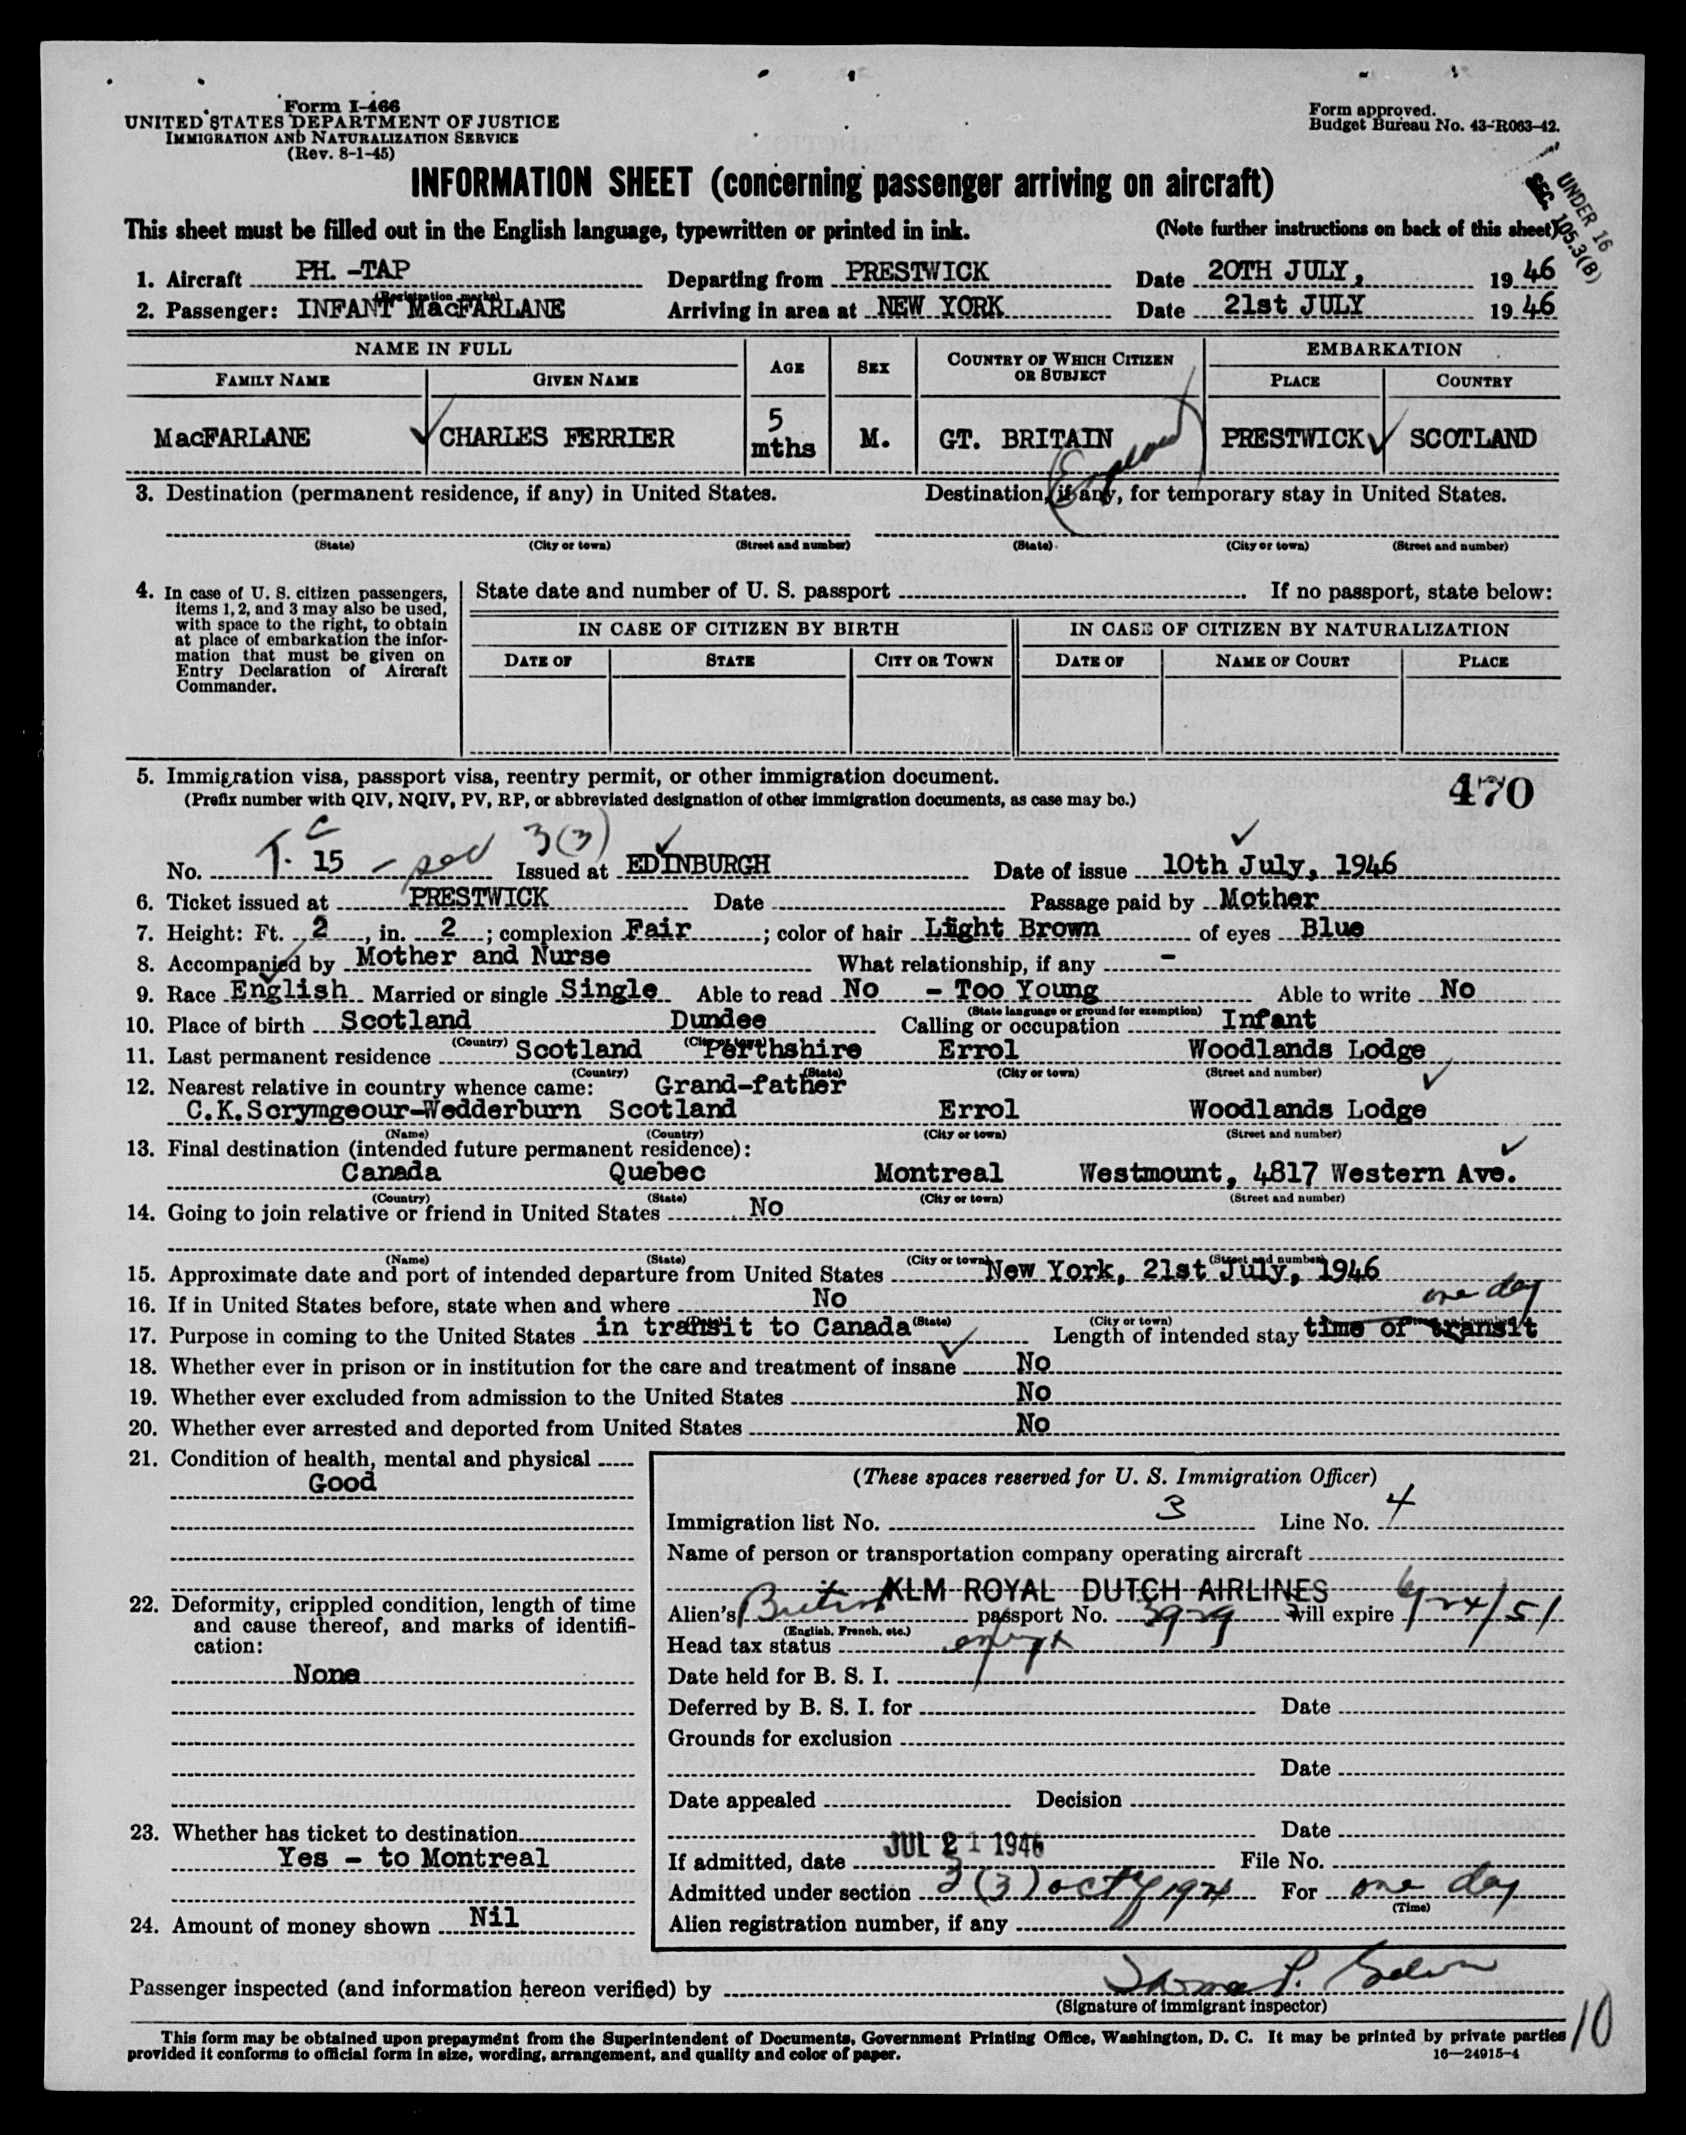 Form I-466
UNITED STATES DEPARTMENT OF JUSTICE
IMMIGRATION AND NATURALIZATION SERVICE
(Rev. 8-1-45)
Form approved.
Budget Bureau No. 43-R063-42.
UNDER 16
SEC. 105.3(B)
INFORMATION SHEET (concerning passenger arriving on aircraft)
This sheet must be filled out in the English language, typewritten or printed in ink. (Note further instructions on back of this sheet)
1. Aircraft PH. -TAP Departing from PRESTWICK Date 20TH JULY, 19 46
(Registration marks)
2. Passenger: INFANT MacFARLANE Arriving in area at NEW YORK Date 21st JULY 19 46
NAME IN FULL AGE SEX COUNTRY OF WHICH CITIZEN OR SUBJECT EMBARKATION
FAMILY NAME GIVEN NAME PLACE COUNTRY
MacFARLANE CHARLES FERRIER 5 mths M. GT. BRITAIN PRESTWICK SCOTLAND
(England)
3. Destination (permanent residence, if any) in United States. Destination, if any, for temporary stay in United States.
(State) (City or town) (Street and number) (State) (City or town) (Street and number)
4. In case of U. S. citizen passengers, items 1, 2, and 3 may also be used, with space to the right, to obtain at place of embarkation the information that must be given on Entry Declaration of Aircraft Commander.
State date and number of U. S. passport. If no passport, state below:
IN CASE OF CITIZEN BY BIRTH IN CASE OF CITIZEN BY NATURALIZATION
DATE OF STATE CITY OR TOWN DATE OF NAME OF COURT PLACE
5. Immigration visa, passport visa, reentry permit, or other immigration document. 470
(Prefix number with QIV, NQIV, PV, RP, or abbreviated designation of other immigration documents, as case may be.)
T. C 3(3)
No. 15 Issued at EDINBURGH Date of issue 10th July, 1946
6. Ticket issued at PRESTWICK Date Passage paid by Mother
7. Height: Ft. 2, in. 2; complexion Fair; color of hair Light Brown of eyes Blue
8. Accompanied by Mother and Nurse What relationship, if any -
9. Race English Married or single Single Able to read No - Too Young Able to write No
(State language or ground for exemption)
10. Place of birth Scotland Dundee Calling or occupation Infant
(Country) (City or town)
11. Last permanent residence Scotland Perthshire Errol Woodlands Lodge
(Country) (State) (City or town) (Street and number)
12. Nearest relative in country whence came: Grand-father
C.K.Scrymgeour-Wedderburn Scotland Errol Woodlands Lodge
(Name) (Country) (City or town) (Street and number)
13. Final destination (intended future permanent residence):
Canada Quebec Montreal Westmount, 4817 Western Ave.
(Country) (State) (City or town) (Street and number)
14. Going to join relative or friend in United States No
(Name) (State) (City or town) (Street and number)
15. Approximate date and port of intended departure from United States New York, 21st July, 1946
16. If in United States before, state when and where No
one day
(State) (City or town)
17. Purpose in coming to the United States in transit to Canada Length of intended stay time of transit
18. Whether ever in prison or in institution for the care and treatment of insane No
19. Whether ever excluded from admission to the United States No
20. Whether ever arrested and deported from United States No
21. Condition of health, mental and physical
Good
22. Deformity, crippled condition, length of time and cause thereof, and marks of identification:
None
23. Whether has ticket to destination
Yes - to Montreal
24. Amount of money shown Nil
(These spaces reserved for U. S. Immigration Officer)
Immigration list No. 3 Line No. 4
Name of person or transportation company operating aircraft
KLM ROYAL DUTCH AIRLINES
Alien's British passport No. 3929 will expire 6/24/51
(English, French, etc.)
Head tax status exempt
Date held for B. S. I.
Deferred by B. S. I. for Date
Grounds for exclusion
Date
Date appealed Decision
Date
If admitted, date JUL 21 1946 File No.
Admitted under section 3(3) act of 1924 For one day
(Time)
Alien registration number, if any
Passenger inspected (and information hereon verified) by Thomas P.
(Signature of immigrant inspector)
10
This form may be obtained upon prepayment from the Superintendent of Documents, Government Printing Office, Washington, D. C. It may be printed by private parties
provided it conforms to official form in size, wording, arrangement, and quality and color of paper. 16—24915-4